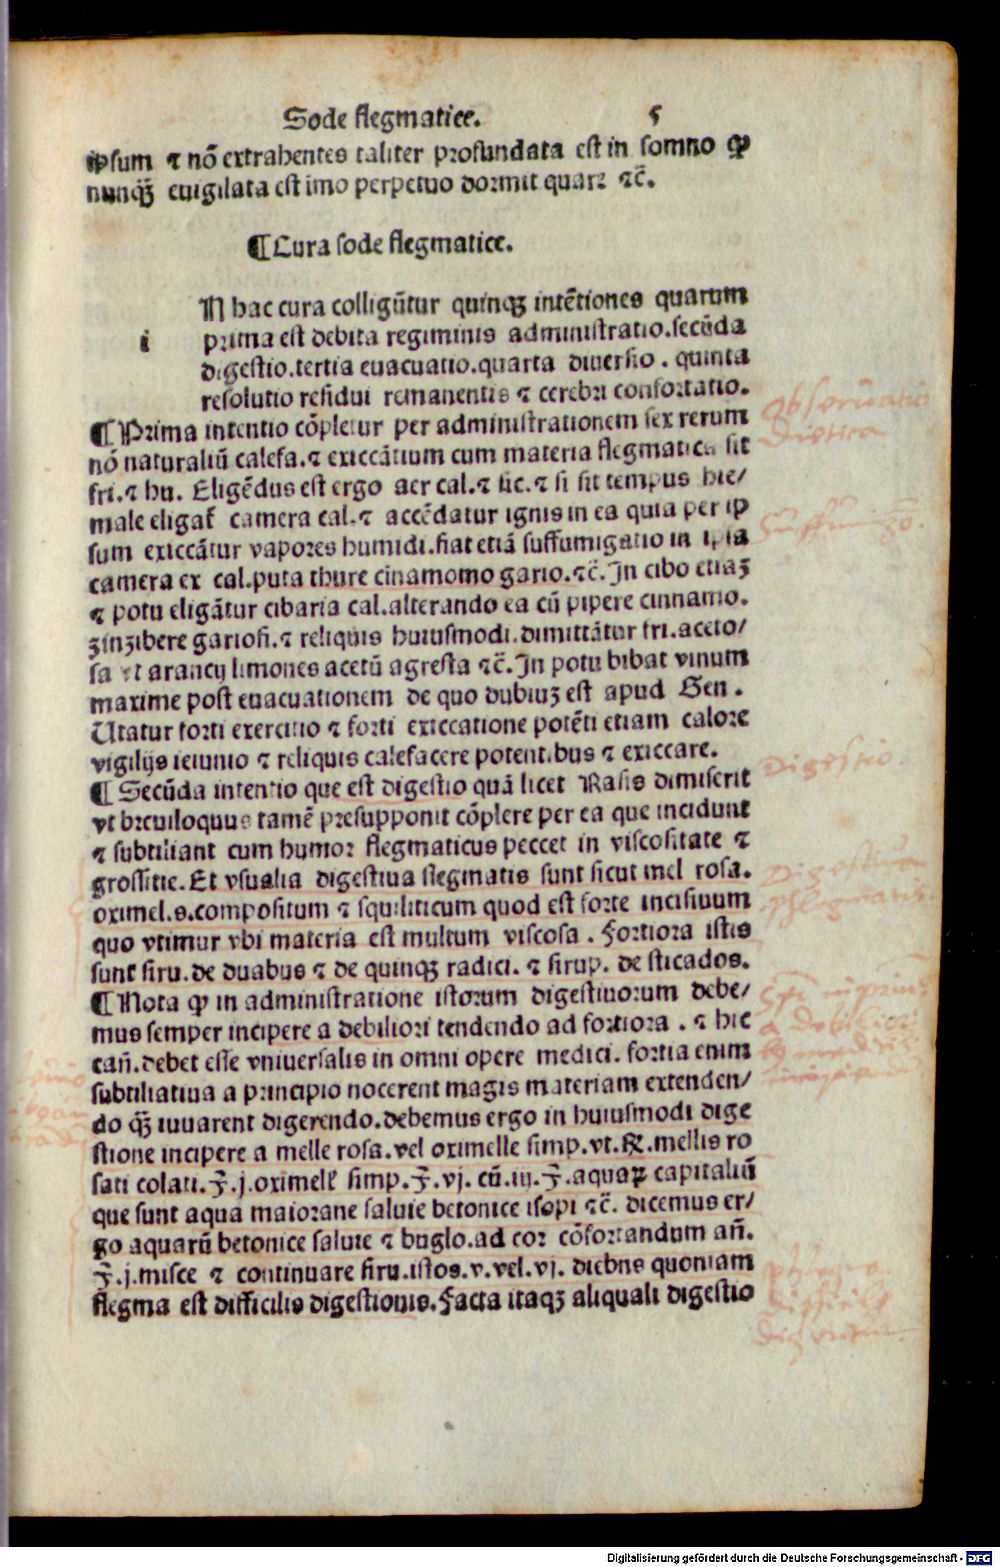 Sode flegmatice. 5
ipsum ⁊ nõ extrahentes taliter profundata est in somno ꝙ
nunqꝫ̃ euigilata est imo perpetuo dormit quare ⁊c̃.
¶ Cura sode flegmatice.
i N hac cura colligũtur quinqꝫ intẽtiones quarum
prima est debita regiminis administratio.secũda
digestio.tertia euacuatio.quarta diuersio. quinta
resolutio residui remanentis ⁊ cerebri confortatio.
¶ Prima intentio cõpletur per administrationem sex rerum
nõ naturaliũ calefa.⁊ exiccãtium cum materia flegmatica sit
fri.⁊ hu. Eligẽdus est ergo aer cal.⁊ sic.⁊ si sit tempus hie/
male eligat̃ camera cal.⁊ accẽdatur ignis in ea quia per ip
sum exiccãtur vapores humidi.fiat etiã suffumigatio in ipsa
camera ex cal.puta thure cinamomo gario.⁊c̃.In cibo etiaꝫ
⁊ potu eligãtur cibaria cal.alterando ea cũ pipere cinnamo.
zinzibere gariofi.⁊ reliquis huiusmodi.dimittãtur fri.aceto/
sa vt arancij limones acetũ agresta ⁊c̃.In potu bibat vinum
maxime post euacuationem de quo dubiuꝫ est apud Gen.
Utatur forti exercitio ⁊ forti exiccatione potẽti etiam calore
vigilijs ieiunio ⁊ reliquis calefacere potentibus ⁊ exiccare.
¶ Secũda intentio que est digestio quã licet Rasis dimiserit
vt breuiloquus tamẽ presupponit cõplere per ea que incidunt
⁊ subtiliant cum humor flegmaticus peccet in viscositate ⁊
grossitie.Et vsualia digestiua flegmatis sunt sicut mel rosa.
oximel.s.compositum ⁊ squiliticum quod est forte incisiuum
quo vtimur vbi materia est multum viscosa. Fortiora istis
sunt siru.de duabus ⁊ de quinqꝫ radici.⁊ sirup. de sticados.
¶ Nota ꝙ in administratione istorum digestiuorum debe/
mus semper incipere a debiliori tendendo ad fortiora.⁊ hic
cañ.debet esse vniuersalis in omni opere medici. fortia enim
subtiliatiua a principio nocerent magis materiam extenden/
do qꝫ̃ iuuarent digerendo.debemus ergo in huiusmodi dige
stione incipere a melle rosa.vel oximelle simp.vt.℞.mellis ro
sati colati.℥.j.oximell̃ simp.℥.vj. cũ.iij.℥.aquaꝝ capitaliũ
que sunt aqua maiorane saluie betonice isopi ⁊c̃. dicemus er/
go aquarũ betonice saluie ⁊ buglo.ad cor cõfortandum añ.
℥.j.misce ⁊ continuare siru.istos.v.vel.vj. diebus quoniam
flegma est difficilis digestionis.Facta itaqꝫ aliquali digestio
obseruatio
Dietica
Digestio.
Digestiua
phlegmatis.
a debiliori
phlegma
difficilis
Digitalisierung gefördert durch die Deutsche Forschungsgemeinschaft - DFG